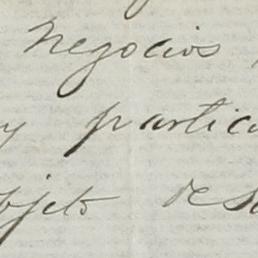 negocios
y partic
bjeto des